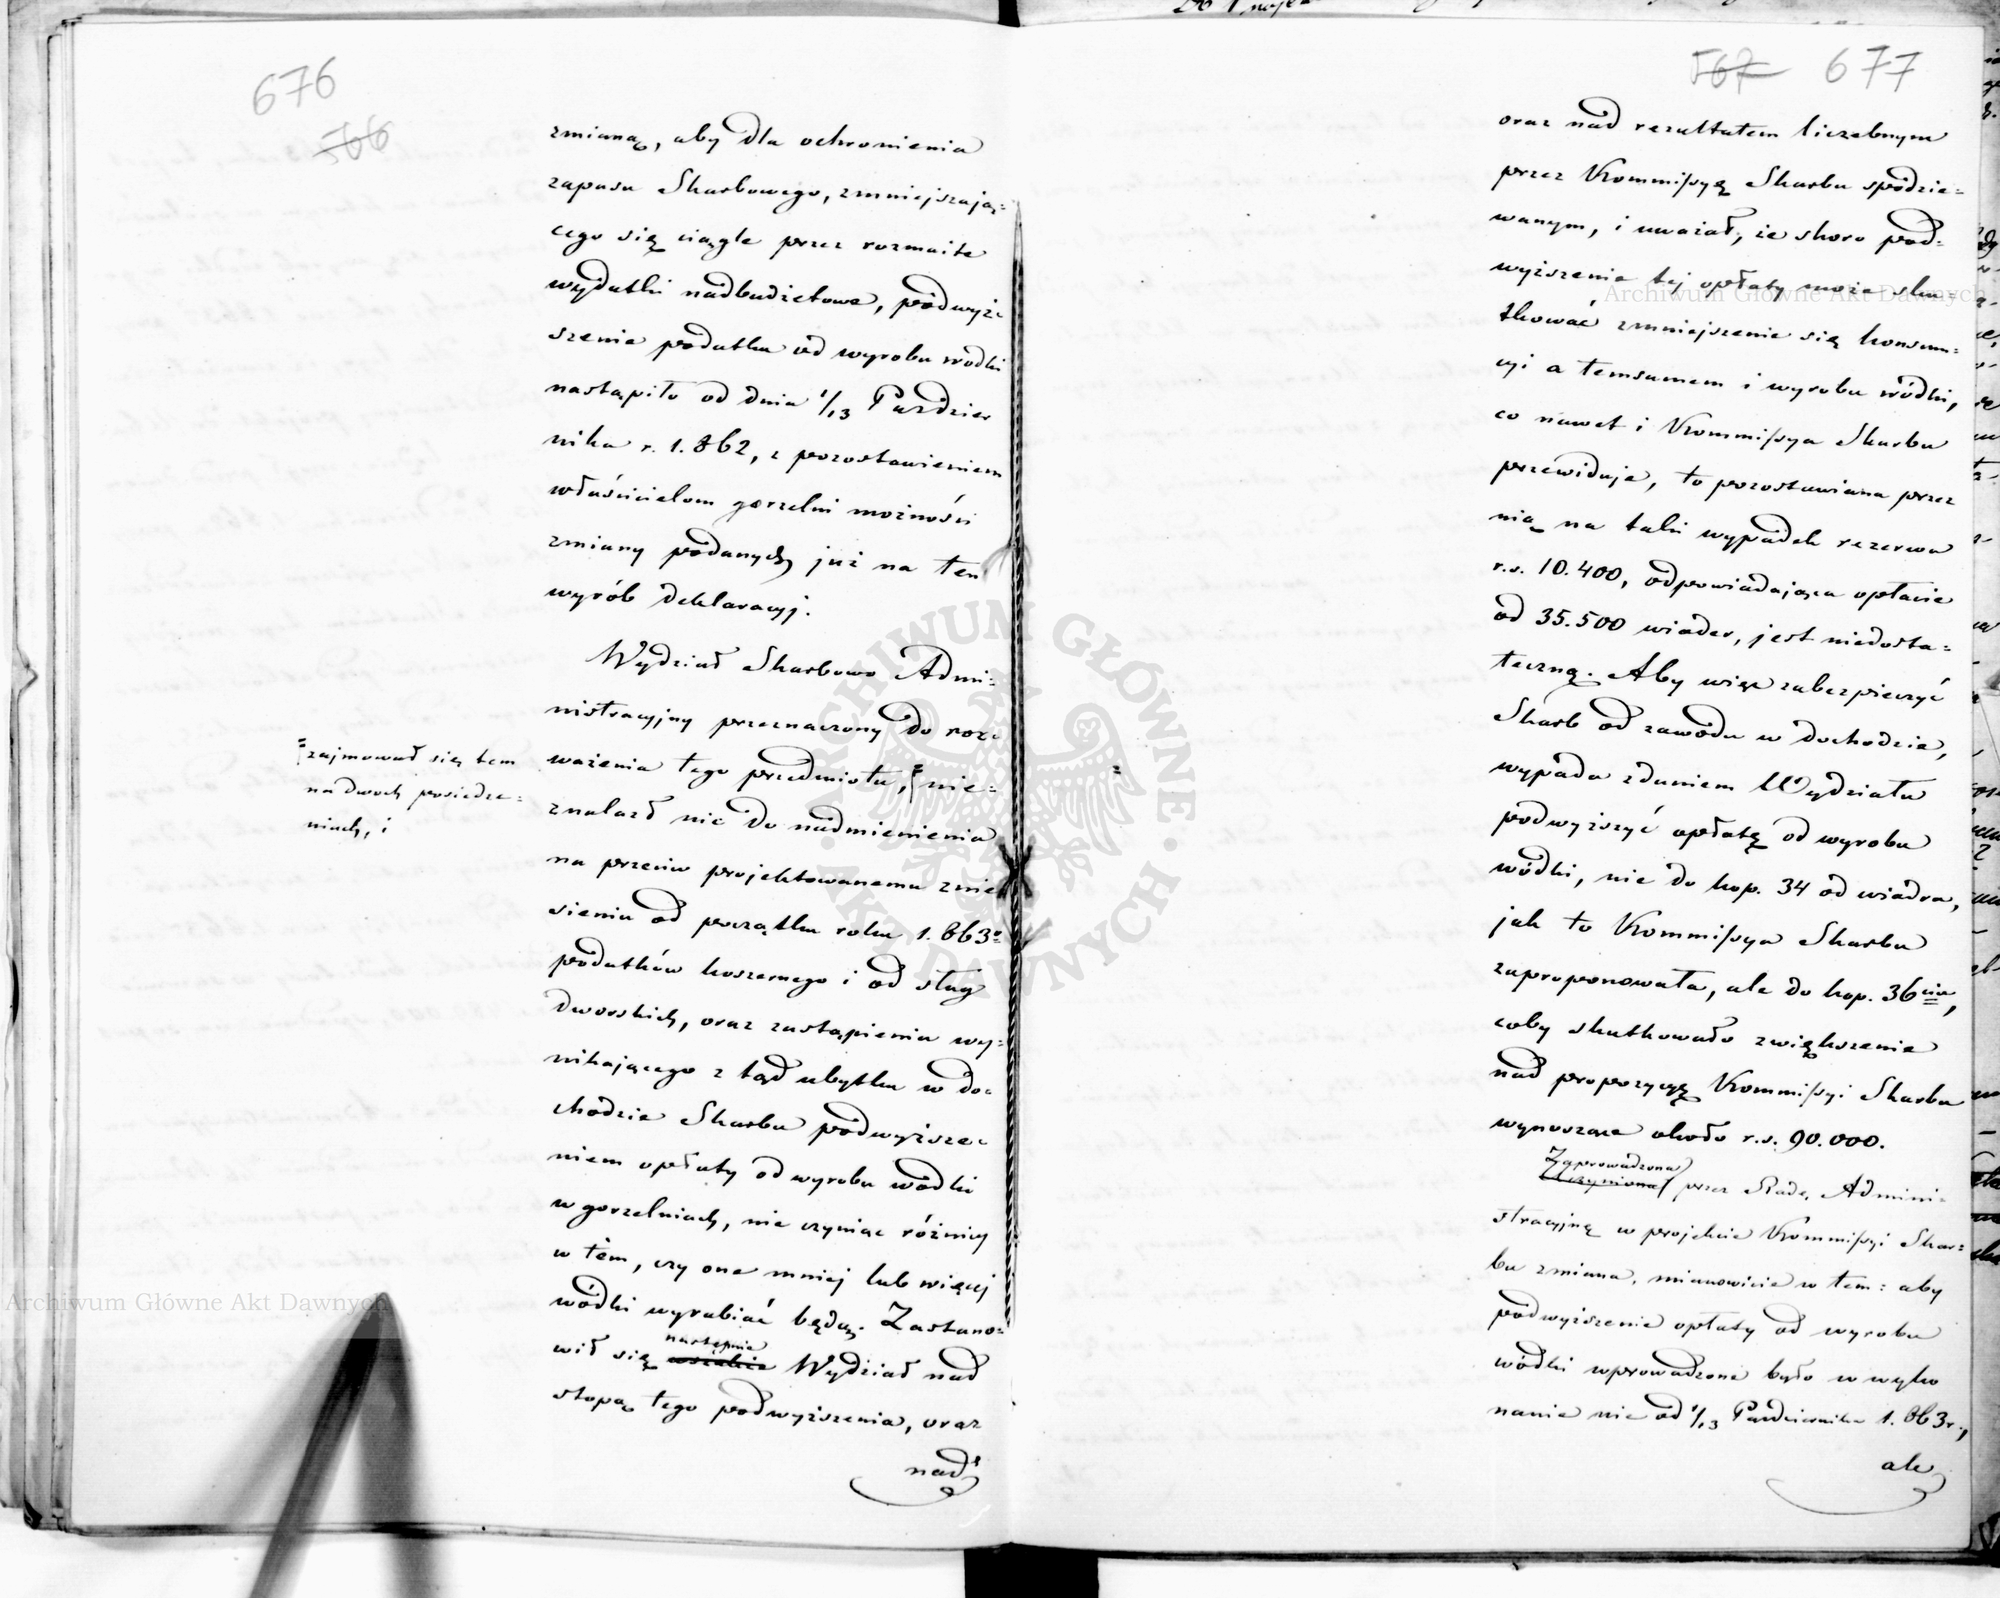 676
566
zmianą, aby dla ochronienia
zapasu Skarbowego, zmniejszają=
cego się ciągle przez rozmaite
wydatki nadbudżetowe, podwyż=
szenie podatku od wyrobu wódki
nastąpiło od dnia 1/13 Paździer
nika r. 1862, z pozostawieniem
właścicielom gorzelni możności
zmiany podanych już na ten
wyrób deklaracyj.
Wydział Skarbowo Admi=
nistracyjny przeznaczony do roz=
ważenia tego przedmiotu, nie=
zajmował się tem
na dwóch posiedze=
niach, i
znalazł nic do nadmienienia
na przeciw projektowanemu znie
sieniu od początku roku 1863º
podatków koszernego i od sług
dworskich, oraz zastąpieniu wy=
nikającego z tąd ubytku w do=
chodzie Skarbu podwyższe=
niem opłaty od wyrobu wódki
w gorzelniach, nie czyniąc różnicy
w tém, czy one mniej lub więcej
wódki wyrabiać będą. Zastano=
następnie
wił się wszakże Wydział nad
stopą tego podwyższenia, oraz
nad
567 677
oraz nad rezultatem liczebnym
przez Kommissyę Skarbu spodzie=
wanym, i uważał, że skoro pod=
wyższenie tej opłaty może sku=
tkować zmniejszenie się konsum=
cyi a temsamem i wyrobu wódki,
co nawet i Kommissya Skarbu
przewiduje, to pozostawiana przez
nią na taki wypadek rezerwa
r.s. 10.400, odpowiadająca opłacie
od 35.500 wiader, jest niedosta=
teczną. Aby więc zabezpieczyć
Skarb od zawodu w dochodzie,
wypada zdaniem Wydziału
podwyższyć opłatę od wyrobu
wódki, nie do kop. 34 od wiadra,
jak to Kommissya Skarbu
zaproponowała, ale do kop. 36ciu,
coby skutkowało zwiększenie
nad propozycyę Kommissyi Skarbu
wynoszące około r.s. 90.000.
Zaprowadzona
Uczyniona przez Radę Admini=
stracyjną w projekcie Kommissyi Skar=
bu zmiana, mianowicie w tem: aby
podwyższenie opłaty od wyrobu
wódki wprowadzone było w wyko
nanie nie od 1/13 Października 1863r.,
ale
ARCHIWUM GŁÓWNE AKT DAWNYCH
Archiwum Główne Akt Dawnych
Archiwum Główne Akt Dawnych